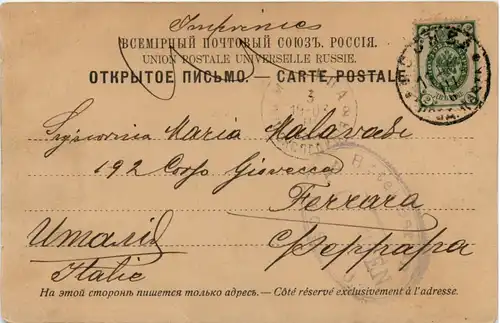 Imprimés
ВСЕМІРНЫЙ ПОЧТОВЫЙ СОЮЗЪ. РОССІЯ.
UNION POSTALE UNIVERSELLE RUSSIE.
ОТКРЫТОЕ ПИСЬМО. — CARTE POSTALE.
Maria Malavasi
192 Corso Giovecca
Ferrara
Италія Феррара
Italie
На этой сторонѣ пишется только адресъ. — Côté réservé exclusivement à l'adresse.